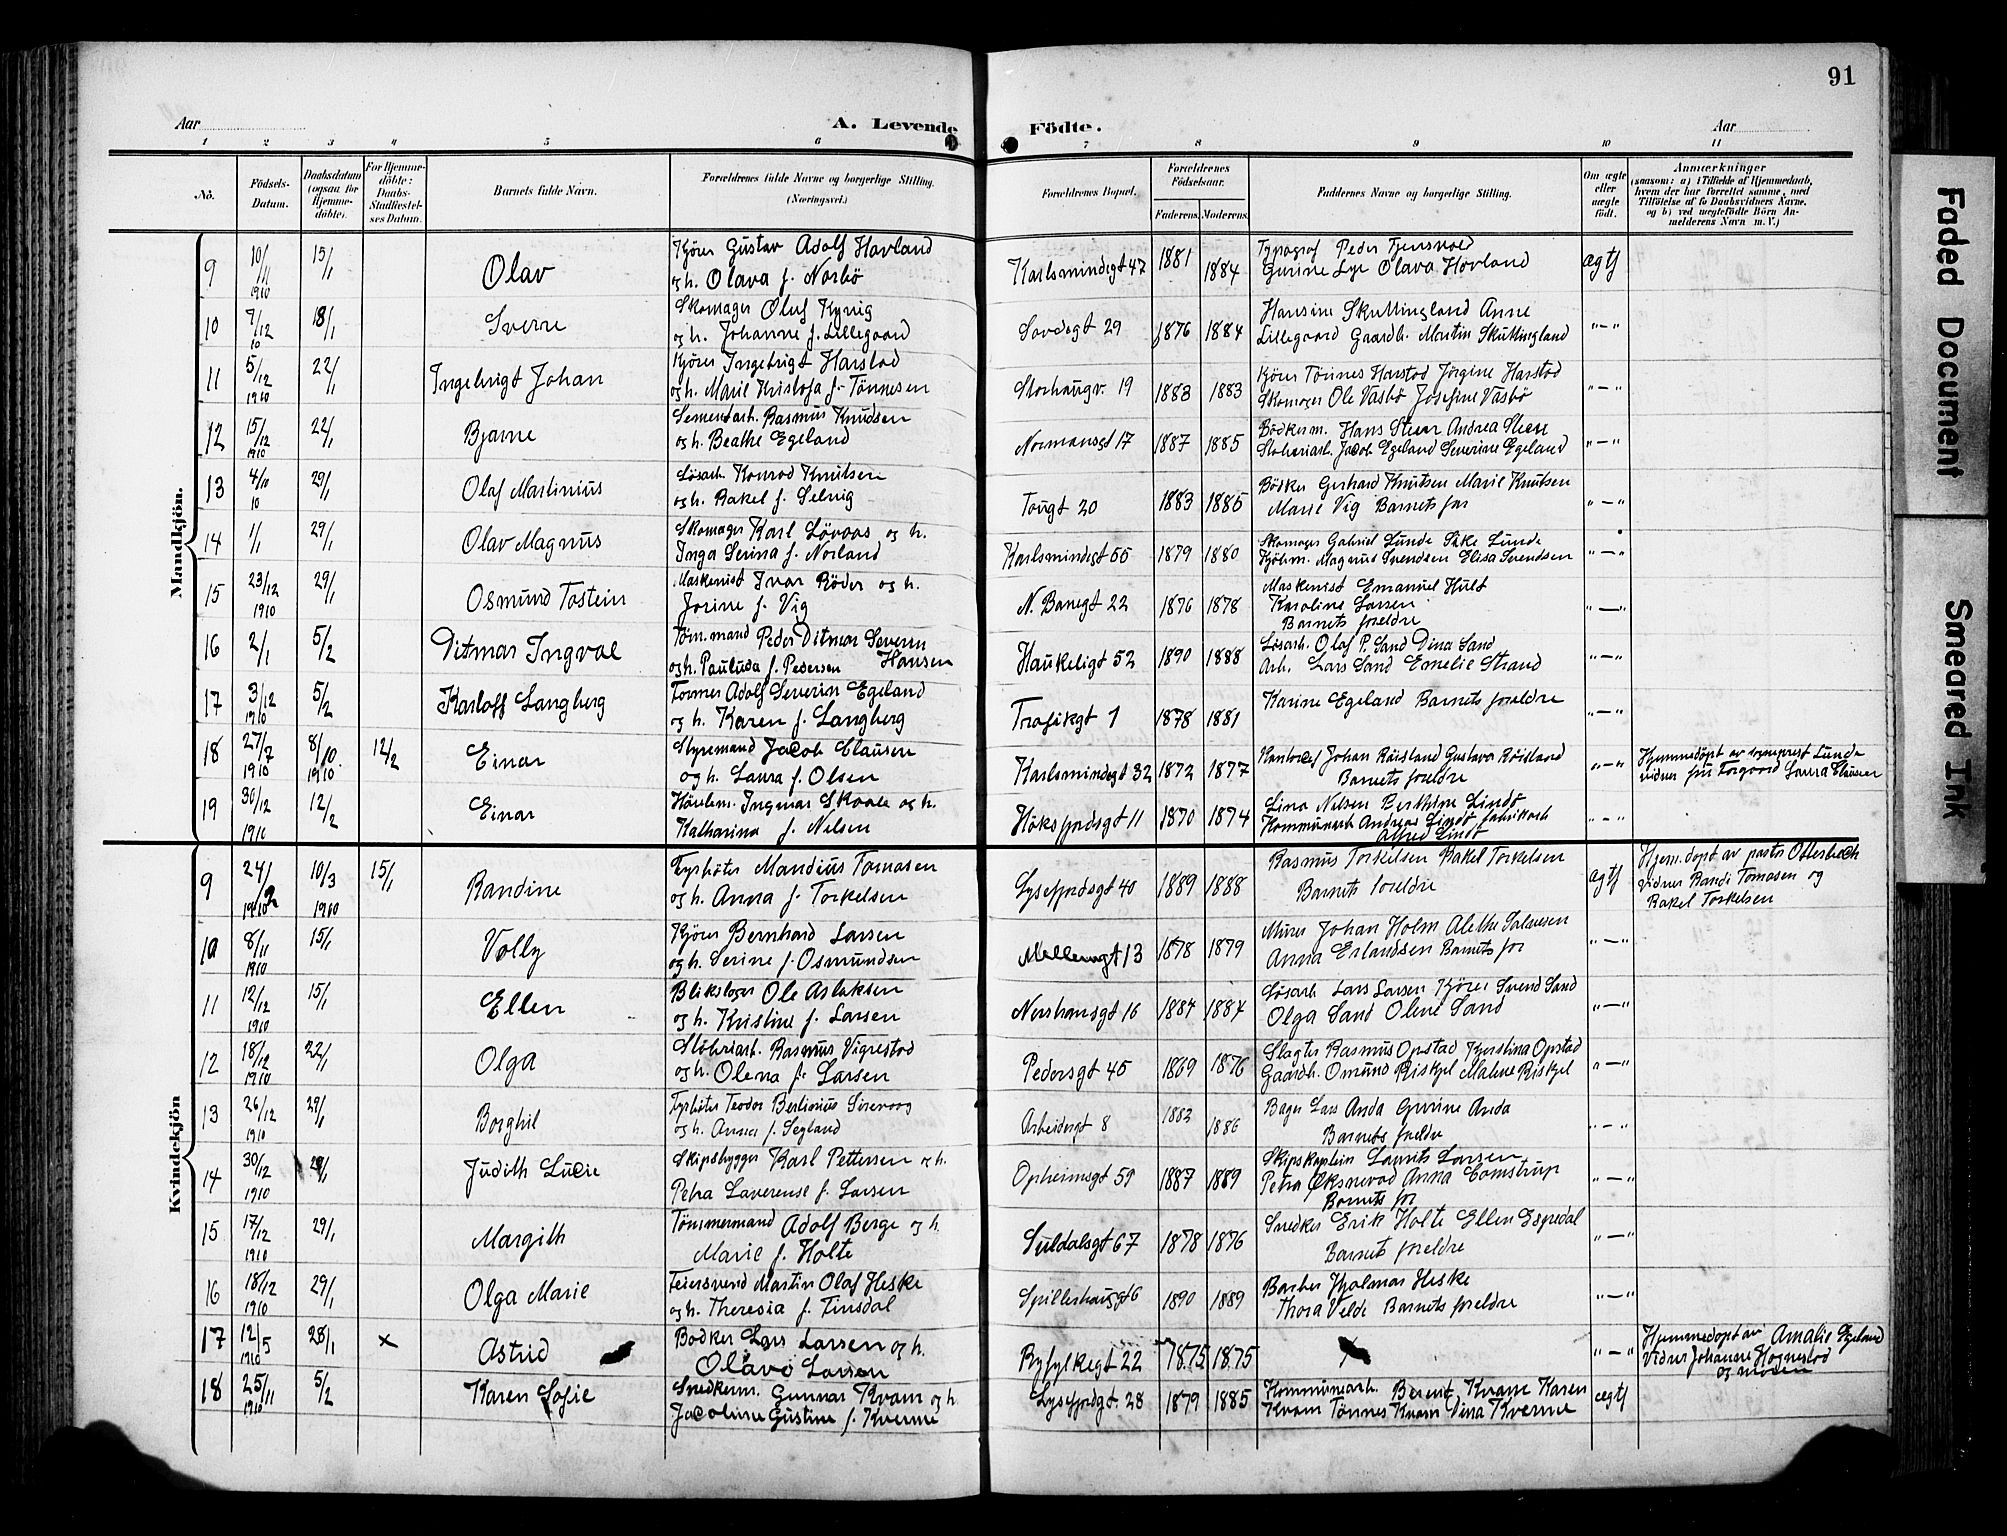 91
Aar
A. Levende
Födte.
Aar
1 2 3 4 5 6 7 8 9 10 11
No.
Födsels-Datum.
Daabsdatum (ogsaa for Hjemme-döbte).
For Hjemme-döbte: Daabs-Stadfæstel-ses Datum.
Barnets fulde Navn.
Forældrenes fulde Navne og borgerlige Stilling. (Næringsvei.)
Forældrenes Bopæl.
Forældrenes Födselsaar.
Faderens. Moderens.
Faddernes Navne og borgerlige Stilling.
Om ægte eller uægte födt.
Anmærkninger
(saasom: a) i Tilfælde af Hjemmedaab, hvem der har forrettet samme, med Tilföielse af to Daabsvidners Navne. og b) ved uægtefödte Börn An-melderens Navn m. V.)
Mandkjön.
9 10/11 1910 15/1 Olav Kjörer Gustav Adolf Havland
og h. Olava f. Norbö Karlsmindegt 47 1881 1884 Typograf Peder
Gurine Lye Olava Hovland ægtf
10 7/12 10 18/1 Sverre Skomager Oluf Kynig
og h. Johanne f. Lillegaard Sovdegt 29 1876 1884 Hansine Skuttingland Anne
Lillegaard Gaardb. Martin Skuttingland "-"
11 5/12 1910 22/1 Ingebrigt Johan Kjörer Ingebrigt Harstad
og h. Marie Kristofa f. Tönnesen Storhaugv. 19 1883 1883 Kjörer Tönnes Harstad Jörgine Harstad
Skomager Ole Vasbö Josefine Vasbö "-"
12 15/12 1910 22/1 Bjarne Sementarb. Rasmus Knudsen
og h. Beathe Egeland Normansgt 17 1887 1885 Bödkerm. Hans Steen Andrea Steen
Stoberiarb. Jacob Egeland Severine Egeland "-"
13 4/10 10 29/1 Olaf Martinius Lösarb. Konrad Knutsen
og h. Rakel f. Selvig Tougt 20 1883 1885 Bödker Gerhard Knutsen Marie Knutsen
Marie Vig Barnets far "-"
14 1/1 29/1 Olav Magnus Skomager Karl Lövaas og h.
Inga Serina f. Norland Karlsmindegt 55 1879 1880 Skomager Gabriel Lunde Silke Lunde
Kjöbm. Magnus Svendsen Elisa Svendsen "-"
15 23/12 1910 29/1 Osmund Tostein Maskenist Ivar Röder og h.
Jorine f. Vig N. Banegt 22 1876 1878 Maskenist Emanuel Hult
Karoline Larsen
Barnets foreldre "-"
16 2/1 5/2 Ditmar Ingval Töm.mand Peder Ditmar Severin
og h. Pauluda f. Pedersen Hansen Haukeligt 52 1890 1888 Lösarb. Olaf P. Sand Dina Sand
Arb. Lars Sand Emelie Strand "-"
17 3/12 1910 5/2 Karloff Langberg Former Adolf Severin Egeland
og h. Karen f. Langberg Trafikgt 1 1878 1881 Karine Egeland Barnets foreldre "-"
18 27/7 1910 8/10 1910. 12/2 Einar Styremand Jacob Clausen
og h. Laura f. Olsen Karlsmindegt 32 1872 1877 Johan Röisland Gustava Röisland
Barnets foreldre "-" Hjemmedöpt av sogneprest Lunde
vidner fru Torgaard Laura Clausen
19 30/12 1910 12/2 Einar Hövlem. Ingmar Skaale og h.
Katharina f. Nilsen Höksfjordsgt 11 1870 1874 Lina Nilsen Berthine Lindö
Kommunearb Andreas Lindö fabrikarb
Alfred Lindö "-"
Kvindekjön
9 24/2 1910 10/3 1910 15/1 Randine Fyrböter Mandius Tomasen
og h. Anna f. Torkelsen Lysefjordsgt 40 1889 1888 Rasmus Torkelsen Rakel Torkelsen
Barnets foreldre ægtf Hjem.döpt av pastor Otterbech
vidner Randi Tomasen og
Rakel Torkelsen
10 8/11 1910 15/1 Volly Kjörer Bernhard Larsen
og h. Serine f. Osmundsen Mellemgt 13 1878 1879 Murer Johan Holm Alethe Salvesen
Anna Erlandsen Barnets far "-"
11 12/12 1910 15/1 Ellen Blikslager Ole Aslaksen
og h. Kristine f. Larsen Nershansgt 16 1884 1884 Lösarb Lars Larsen Kjörer Svend Sand
Olga Sand Olene Sand "-"
12 18/12 1910 22/1 Olga Stöberiarb. Rasmus Vigrestad
og h. Olena f. Larsen Pedersgt 45 1869 1876 Slagter Rasmus Opstad Kjerstina Opstad
Gaardb. Omund Riskjel Malene Riskjel "-"
13 26/12 1910 29/1 Borghil Fyrböter Teodor Bertinius Sirevaag
og h. Anna f. Segland Arbeidergt 8 1882 1886 Bager Lars Anda Gurine Anda
Barnets foreldre "-"
14 30/12 1910 29/1 Judith Lucie Skipsbygger Karl Pettersen og h.
Petra Laverense f. Larsen Opheimsgt 59 1887 1889 Skipskaptein Laurits Larsen
Petra Öksnevad Anna Comstrup
Barnets far "-"
15 17/12 1910 29/1 Margith Tömmermand Adolf Berge og h.
Marie f. Holte Suldalsgt 67 1878 1876 Snedker Erik Holte Ellen Espedal
Barnets foreldre "-"
16 18/12 1910 29/1 Olga Marie Feiersvend Martin Olaf Heske
og h. Theresia f. Tinsdal Spilderhaugsgt 6 1890 1889 Barber Hjalmar Heske
Thora Velde Barnets foreldre "-"
17 12/5 1910 28/1 x Astrid Bödker Lars Larsen og h.
Olava Larsen Ryfylkegt 22 1875 1875 "-" Hjemmedöpt av Amalie Egeland
Vidner Johanne Hognestad
og moren
18 25/11 1910 5/2 Karen Sofie Snedkerm. Gunnar Kvam og h.
Jacobine Gustine f. Kverme Lysefjordgt. 28 1879 1885 Kommunearb. Berent Kvame Karen
Kvam Tönnes Kvam Dina Kverme ægtf
Faded Document
Smeared Ink